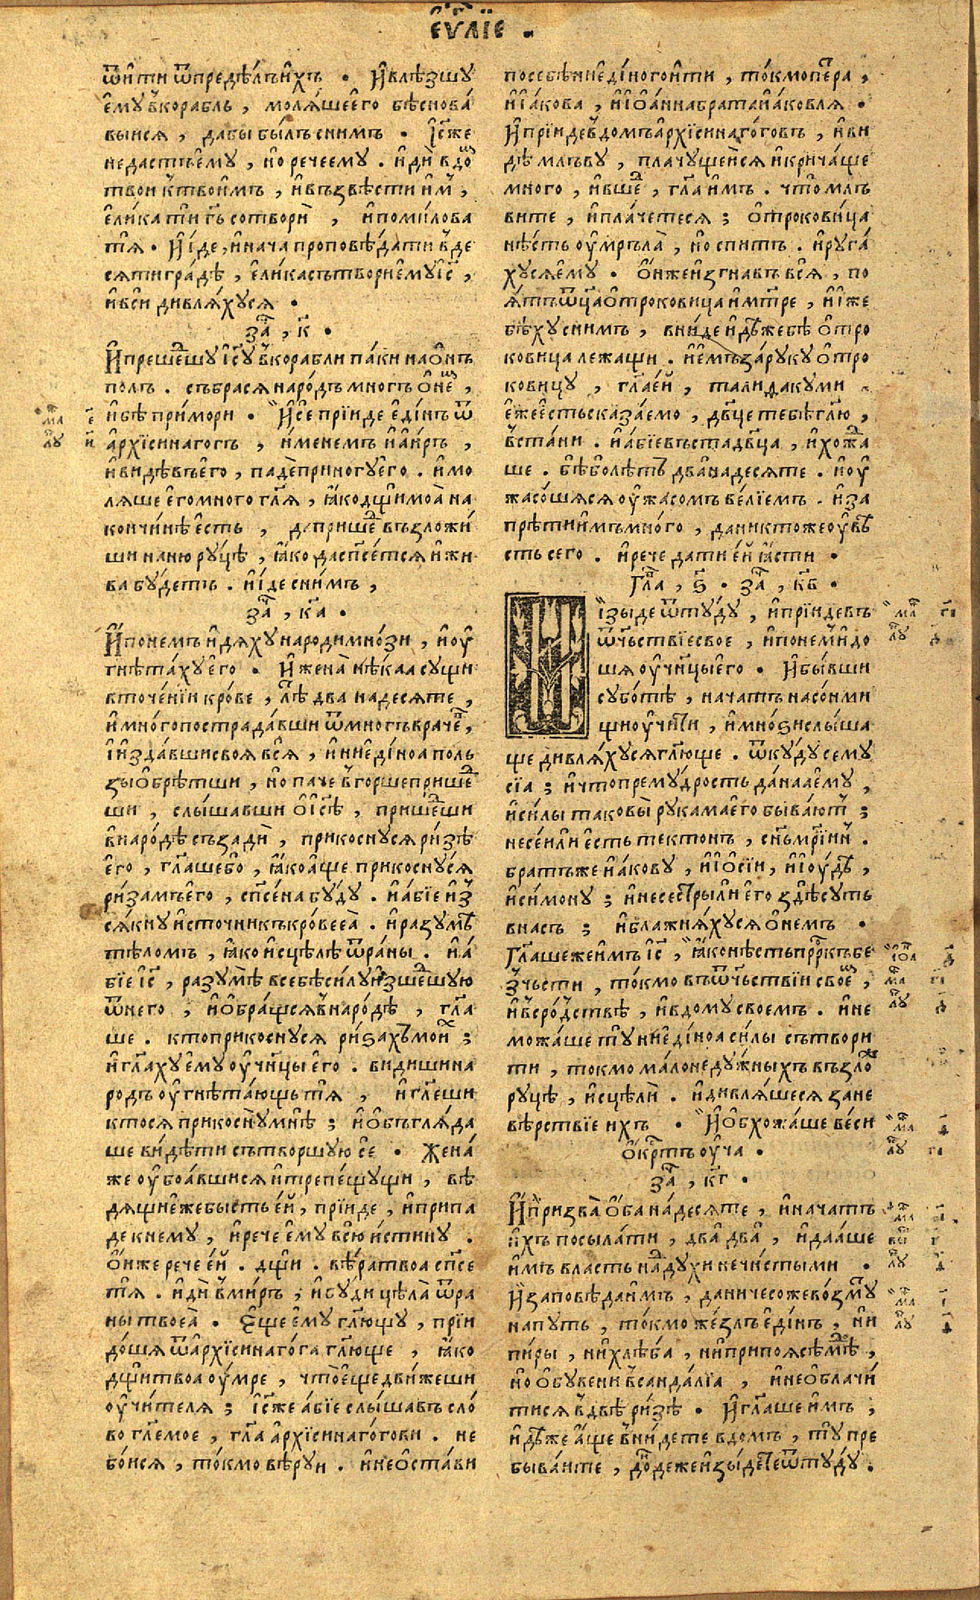 еѵⷢ҇лїе .
ѿити ѿпредѣлъихъ . Ивлѣзшу
ему вкорабль , моляшеего бѣснова
выися , дабы былъ снимъ . Іс҃же
недастъему , но речеему . иди вдоⷨ
твои ктвоимъ , ивъзвѣсти иⷨ ,
елика ти гь҃ сотвори , ипомилова
тя . Ииде , иначаⷮ проповѣдати вде
сятиградѣ , еликасътвориемуіс҃ ,
ивси дивляхуся .
заⷱ҇ , к҃ .
Ипрешеⷣшу іс҃у вкорабли паки наонъ
полъ . събрася народъ многъ онеⷨ ,
ибѣ примори . Исе пріиде единъ ѿ
архїсинагогъ , именемъ иаиръ ,
ивидѣвъего , падеприногуего . имо
ляше егомного гл҃я , ꙗкодщ҃имоа на
кончинѣ есть , дапришеⷣ възложи
ши наню руцѣ , ꙗко даспс҃ется ижи
ва будетъ . ииде снимъ ,
заⷱ҇ , к҃а .
Ипонемъ идяху народимнози , иоу
гнѣтахуего . Ижена нѣкаа сущи
вточенїи крове , лⷮѣ два надесяте ,
имногопострадавши ѿмногъ врачеⷡ ,
ииздавшисвоя вся , иниединоа поль
зыобрѣтши , но паче вгоршепришеⷣ
ши , слышавши оіс҃ѣ , пришеⷣши
внародѣ съзади , прикоснуся ризѣ
его , гл҃ашебо , ꙗкоаще прикоснуся
ризамъего , спс҃ена буду . иабїе из
сякну источникъкровееа . иразумѣ
тѣломъ , ꙗко исцѣлѣ ѿраны . иа
бїе іс҃ , разумѣ всебѣсилу изшеⷣшую
ѿнего , иобращся внародѣ , гл҃а
ше . ктоприкоснуся ризахъ моиⷯ ;
игл҃аху ему оучн҃цы его . видишина
родъ оугнѣтающь тя , игл҃еши
ктося прикоснумнѣ ; иобъгляда
ше видѣти сътворшую се . Жена
же оубоавшися итрепещущи , вѣ
дящи ежебысть еи , прїиде , иприпа
де кнему , ирече ему всю истину .
Онже рече еи . дщ҃и . вѣратвоа спс҃е
тя . иди вмиръ , ибуди цѣла ѿра
ны твоеа . Еще ему гл҃ющу , прїи
доша ѿархїсинагога гл҃юще , ꙗко
дщ҃итвоа оумре , чтоещедвижеши
оучителя ; Іс҃же абїе слышавъ сло
во гл҃емое , гл҃а архїсинагогови . не
боися , токмо вѣруи . инеостави
посебѣниединогоити , токмопетра ,
иіакова , иіоаннабратаиаковля .
Ипрїидевдомъархїсинагоговъ , иви
дѣ млъву , плачущеися икричаще
много , ившеⷣ , гл҃а имъ . что млъ
вите , иплачетеся ; отроковица
нѣсть оумръла , но спитъ . ируга
хусяему . Онжеизгнавъ вся , по
ятъѿц҃аотроковица имт҃ре , ииже
бѣху снимъ , вниде идѣжебѣ отро
ковица лежащи . иемъзаруку отро
ковицу , гл҃аеи , талидакуми .
ежеестьсказаемо , дв҃це тебѣгл҃ю ,
встани . иабїевъстадв҃ца , ихожⷣа
ше . бѣболѣтъ дванадесяте . иоу
жасошяся оужасомъ велїемъ . иза
прѣтиимъмного , даниктожеоувѣ
сть сего . ирече дати еи ꙗсти .
Глаⷡ , ѕ҃ . заⷱ҇ , к҃в .
Изыде ѿтуду , ипрїидевъ
ѿчьствїесвое , ипонемъидо
шя оучн҃цыего . Ибывши
суботѣ , начатъ насонми
щиоучити , имноѕислыша
ще дивляхусягл҃юще . ѿкуду сему
сїа ; ичтопремудрость данааему ,
исилы таковы рукамаего бываютъ ;
несеили есть тектонъ , сн҃ъмр҃їинъ .
братъже иакову , иіосїи , июудѣ ,
исимону ; инесестрылиего здѣсуть
внасъ ; иблажняхуся онемъ .
Гл҃ашежеимъ іс҃ , ꙗконѣстьпр҃ркъбе
зчьсти , токмо въѿчьствїи своеⷨ ,
ивсродствѣ , ивдому своемъ . ине
можаше ту ниединоа силы сътвори
ти , токмо малонедужныхъ възло
руцѣ , исцѣли . идивляшеся зане
вѣрствїе ихъ . Иобхожаше веси
окртъ оуча .
заⷱ҇ , к҃г .
Ипризва обанадесяте , иначатъ
ихъ посылати , два два , идааше
имъ власть надухи нечистыми .
Изаповѣдаимъ , даничесожевозмуⷮ
напуть , токмо жезлъ единъ , ни
пиры , нихлѣба , ниприпоясѣмѣⷣ ,
но обувени всандалїа , инеоблачи
тися вдвѣ ризѣ . Игл҃аше имъ ,
идѣже аще внидете вдомъ , ту пре
бываите , дондежеизыдетеѿтуду .